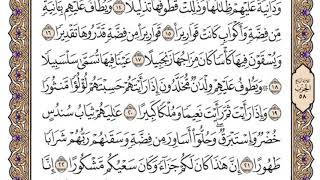 وَدَانِيَةً عَلَيْهِمْ ظِلَٰلُهَا وَذُلِّلَتْ قُطُوفُهَا تَذْلِيلًا ١٤ وَيُطَافُ عَلَيْهِم بِـَٔانِيَةٍ
مِّن فِضَّةٍ وَأَكْوَابٍ كَانَتْ قَوَارِيرَا۠ ١٥ قَوَارِيرَا۟ مِن فِضَّةٍ قَدَّرُوهَا تَقْدِيرًا ١٦
وَيُسْقَوْنَ فِيهَا كَأْسًا كَانَ مِزَاجُهَا زَنجَبِيلًا ١٧ عَيْنًا فِيهَا تُسَمَّىٰ سَلْسَبِيلًا
١٨ ۞ وَيَطُوفُ عَلَيْهِمْ وِلْدَٰنٌ مُّخَلَّدُونَ إِذَا رَأَيْتَهُمْ حَسِبْتَهُمْ لُؤْلُؤًا مَّنثُورًا
١٩ وَإِذَا رَأَيْتَ ثَمَّ رَأَيْتَ نَعِيمًا وَمُلْكًا كَبِيرًا ٢٠ عَٰلِيَهُمْ ثِيَابُ سُندُسٍ
خُضْرٌ وَإِسْتَبْرَقٌ وَحُلُّوٓا۟ أَسَاوِرَ مِن فِضَّةٍ وَسَقَىٰهُمْ رَبُّهُمْ شَرَابًا
طَهُورًا ٢١ إِنَّ هَٰذَا كَانَ لَكُمْ جَزَآءً وَكَانَ سَعْيُكُم مَّشْكُورًا ٢٢ إِنَّا
الحزب
٥٨